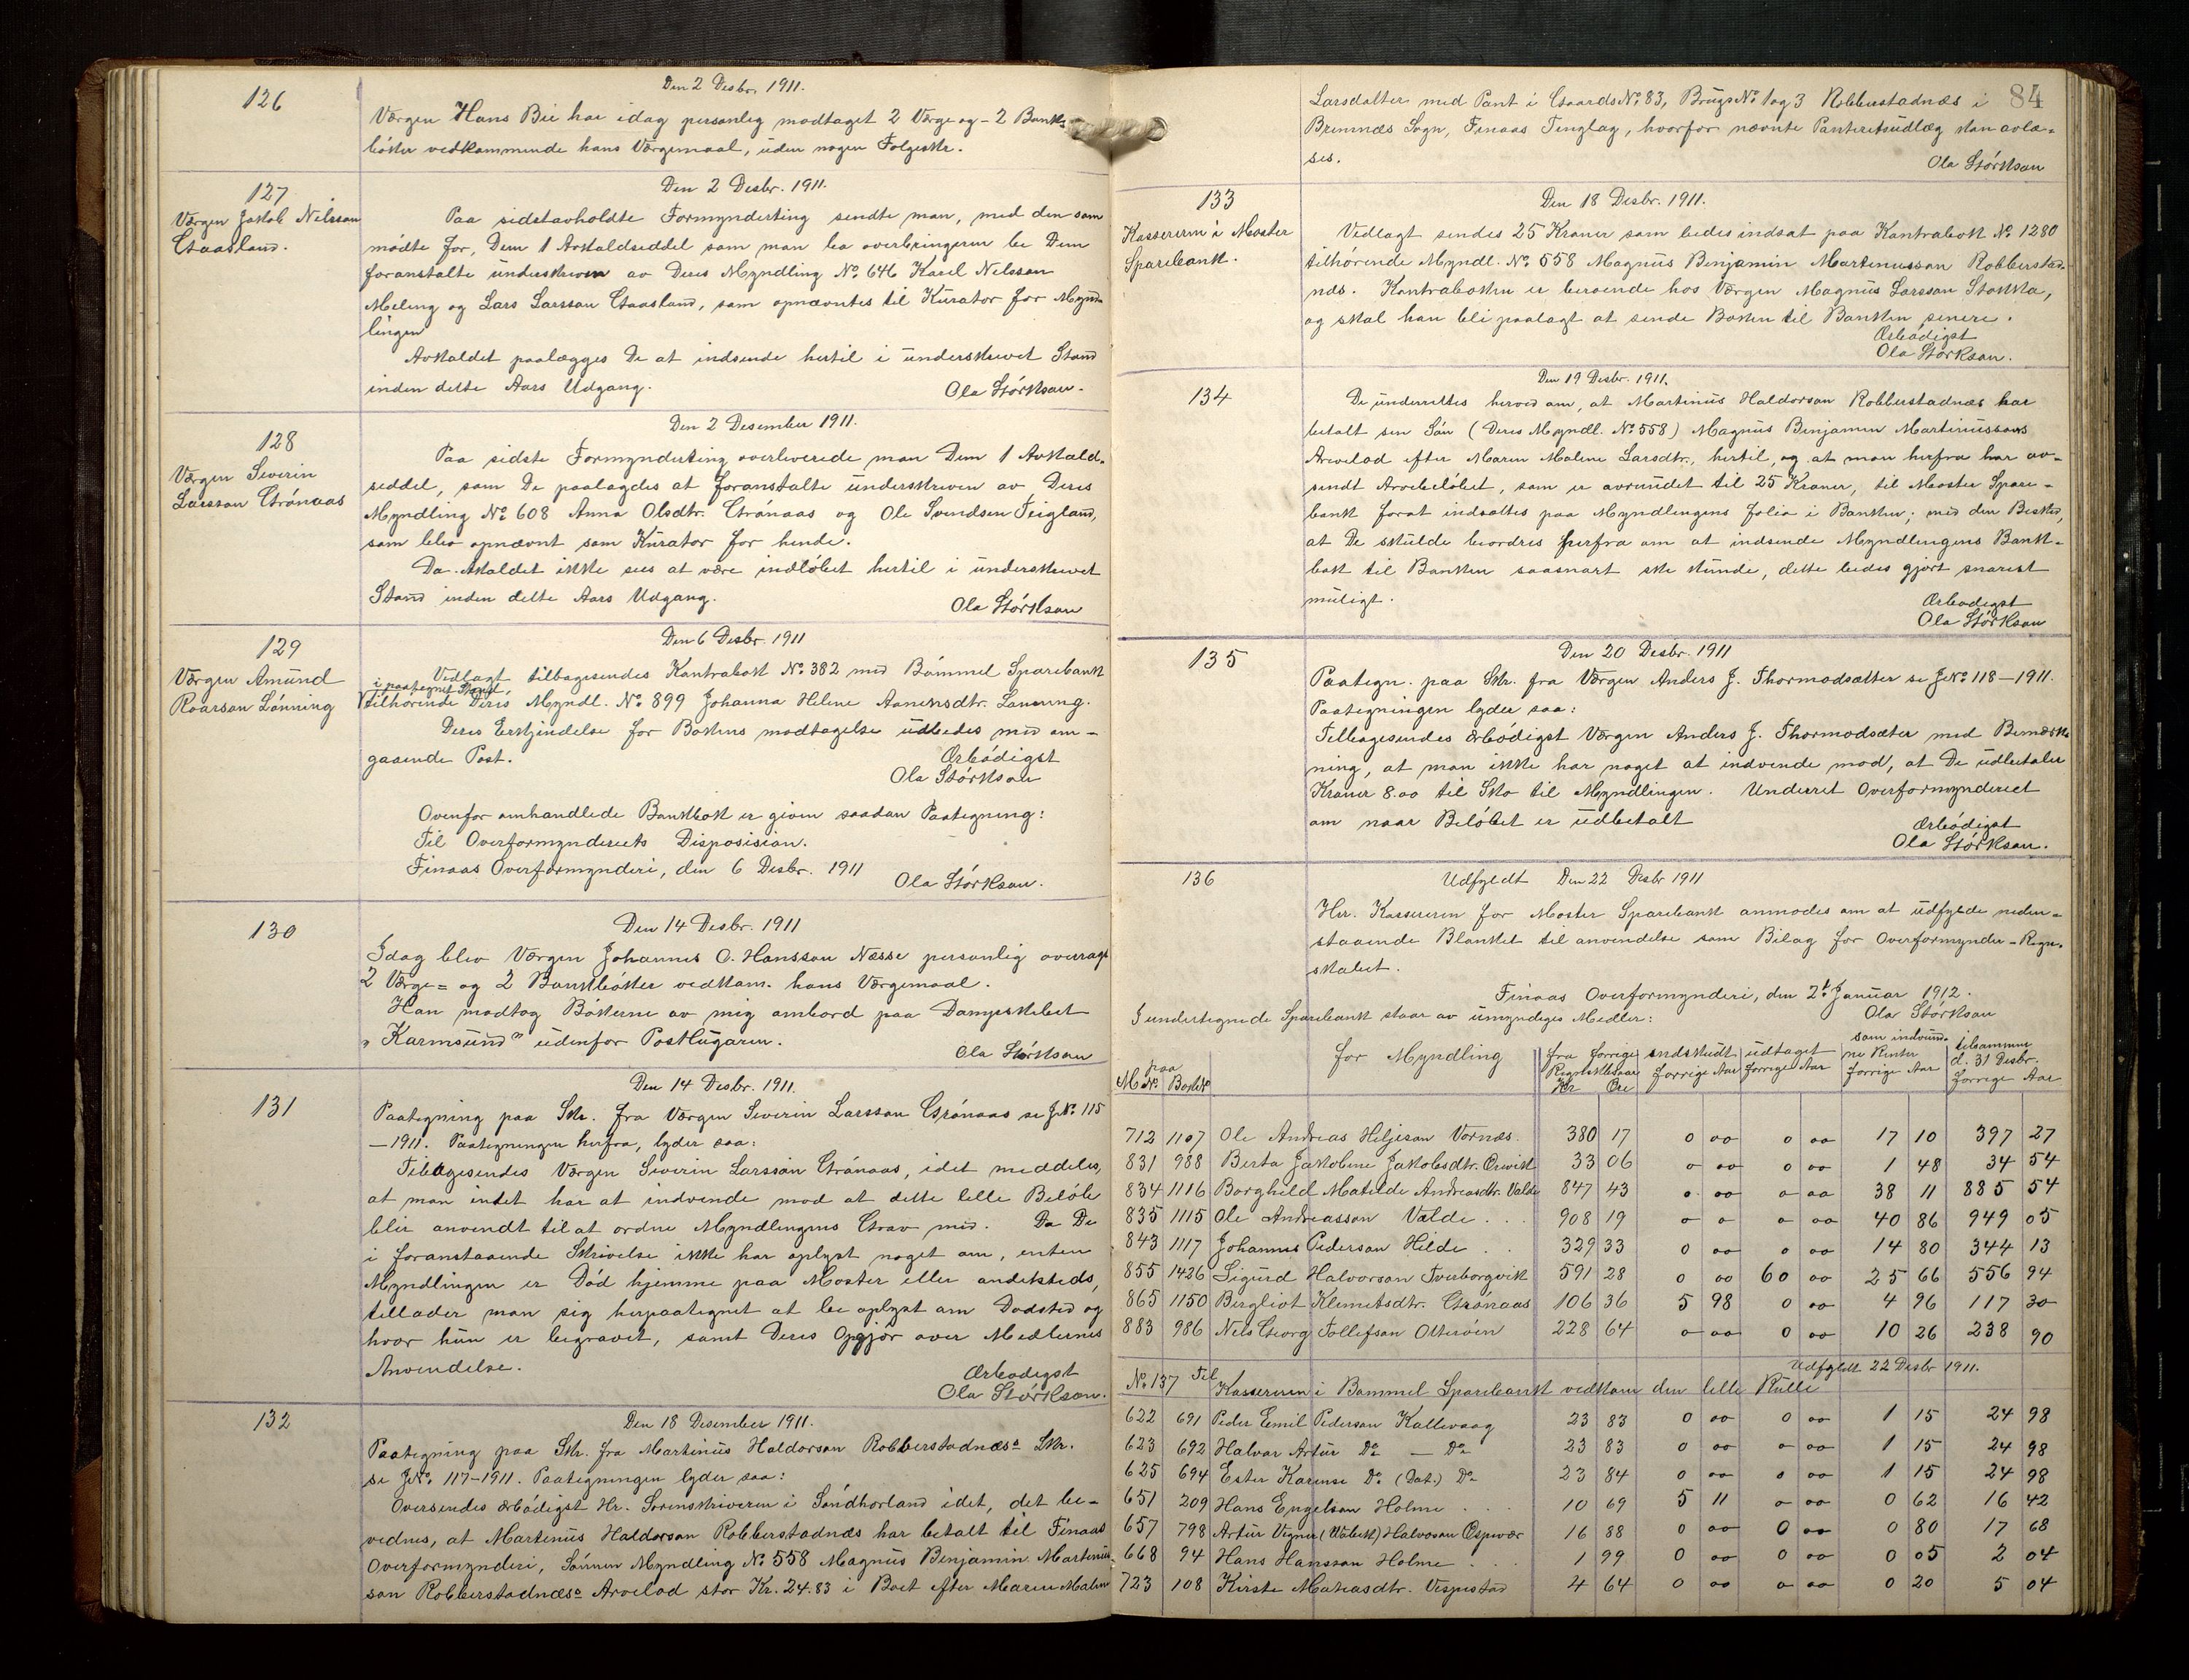 126
Den 2 Desbr. 1911.
Værgen Hans Bie har idag personlig modtaget 2 Værge og - 2 Bank-
bøker vedkommende hans Værgemaal, uden nogen Følgeskr.
127
Værgen Jakob Nilsson
Gaasland.
Den 2 Desbr. 1911.
Paa sidstavholdte Formynderting sendte man, med den som
mødte for, Dem 1 Avkaldseddel som man ba overbringeren be Dem
foranstalte underskreven av Deres Myndling No. 646 Karl Nelsson
Meling og Lars Larsson Gaasland, som opnævntes til Kurator for Mynd-
lingen
Avkaldet paalægges De at indsende hertil i underskrevet Stand
inden dette Aars Udgang.
Ola Størkson.
128
Værgen Severin
Larsson Grónaas
Den 2 Desember 1911.
Paa sidste Formynderting overleverede man Dem 1 Avkald-
seddel, som De paalagdes at foranstalte underskreven av Deres
Myndling No. 608 Anna Olsdtr. Grónaas og Ole Svendsen Teigland,
som blev opnævnt som Kurator for hende.
Da Avkaldet ikke sees at være indløbet hertil i underskrevet
Stand inden dette Aars Udgang.
Ola Størkson
129
Værgen Amund
Roarson Lónning
Den 6 Desbr. 1911
Vedlagt tilbagesendes Kontrabok No. 382 med Bómmel Sparebank
i paategnet Stand,
tilhórende Deres Myndl. No. 899 Johanna Helene Aanensdtr. Lónning.
Deres Erkjendelse for Bokens modtagelse udbedes med om-
gaaende Post.
Ærbódigst
Ola Størkson
Ovenfor omhandlede Bankbok er given saadan Paategning:
Til Overformynderiets Disposision.
Finaas Overformynderi, den 6 Desbr. 1911
Ola Størkson.
130
Den 14 Desbr. 1911
Idag blev Værgen Johannes O. Hansson Næsse personlig overragt
2 Værge= og 2 Bankbóker vedkom. hans Værgemaal.
Han modtog Bókerne av mig ombord paa Dampskibet
"Karmsund" udenfor Postlugaren.
Ola Størkson
131
Den 14 Desbr. 1911.
Paategning paa Skr. fra Værgen Severin Larsson Grónaas se J.No. 115
-1911. Paategningen herfra, lyder saa:
Tilbagesendes Værgen Severin Larsson Grónaas, idet meddeles,
at man intet har at indvende mod at dette lille Belób
blir anvendt til at ordne Myndlingens Grav med. Da De
i foranstaaende Skrivelse ikke har oplyst noget om, enten
Myndlingen er Dód hjemme paa Moster eller andetsteds,
tillader man sig herpaategnet at be oplyst om Dodsted og
hvor hun er begravet, samt Deres Opgjór over Medlernes
Anvendelse.
Ærbodigst
Ola Størkson.
132
Den 18 Desember 1911.
Paategning paa Skr. fra Martinius Haldorson Robberstadnæs Skr.
se J.No. 117-1911. Paategningen lyder saa:
Oversendes ærbódigst Hr. Sorenskriveren i Sóndhorland idet, det be-
vidnes, at Martinius Haldorson Robberstadnæs har betalt til Finaas
Overformynderi, Sónnen Myndling No. 558 Magnus Benjamin Martinus-
son Robberstadnæs Arvelod stor Kr. 24.83 i Boet efter Maren Malene
84
Larsdatter med Pant i Gaards No. 83, Brugs No. 1 og 3 Robberstadnæs i
Bremnæs Sogn, Finaas Tinglag, hvorfor nævnte Panteretsudlæg kan avlæ-
ses.
Ola Størkson
133
Kassereren i Moster
Sparebank.
Den 18 Desbr. 1911.
Vedlagt sendes 25 Kroner som bedes indsat paa Kontrabok No. 1280
tilhórende Myndl. No. 558 Magnus Benjamin Martinusson Robberstad-
næs. Kontraboken er beroende hos Værgen Magnus Larsson Stokka,
og skal han bli paalagt at sende Boken til Banken senere.
Ærbódigst
Ola Størkson.
134
Den 19 Desbr. 1911.
De underrettes herved om, at Martinus Haldorson Robberstadnæs har
betalt sin Són (Deres Myndl. No. 558) Magnus Benjamin Martinussons
Arvelod efter Maren Malene Larsdtr., hertil, og at man herfra har av-
sendt Arvebelóbet, som er avrundet til 25 Kroner, til Moster Spare-
bank forat indsættes paa Myndlingens folio i Banken; med den Besked,
at De skulde beordres herfra om at indsende Myndlingens Bank-
bok til Banken saasnart ske kunde, dette bedes gjórt snarest
muligt.
Ærbodigst
Ola Størkson
135
Den 20 Desbr. 1911
Paategn. paa Skr. fra Værgen Anders J. Thormodsætter se J.No. 118-1911.
Paategningen lyder saa:
Tilbagesendes ærbódigst Værgen Anders J. Thormodsæter med Bemærk-
ning, at man ikke har noget at indvende mod, at De udbetaler
Kroner 8.00 til Sko til Myndlingen. Underret Overformynderiet
om naar Belóbet er udbetalt
Ærbódigst
Ola Størkson.
136
Udfyldt Den 22 Desbr 1911
Hr. Kassereren for Moster Sparebank anmodes om at udfylde neden-
staaende Blanket til anvendelse som Bilag for Overformynder-Regn-
skabet.
Finaas Overformynderi, den 2. Januar 1912.
Ola Størkson
I undertegnede Sparebank staar av umyndiges Midler:
M No. paa Bok No. for Myndling fra forrige Regnskabsaar Kr Øre indskudt forrige Aar udtaget forrige Aar som indvundne Renter forrige Aar tilsammen d. 31 Desbr. forrige Aar
712 1107 Ole Andreas Heljeson Vornæs. 380 17 0 00 0 00 17 10 397 27
831 988 Berta Jakobine Jakobsdtr. Ervik 33 06 0 00 0 00 1 48 34 54
834 1116 Borghild Matilde Andreasdtr. Valde 847 43 0 00 0 00 38 11 885 54
835 1115 Ole Andreasson Valde . . . 908 19 0 0 0 00 40 86 949 05
843 1117 Johannes Pederson Hilde . . 329 33 0 00 0 00 14 80 344 13
855 1426 Sigurd Halvorson Tverborgvik 591 28 0 00 60 00 25 66 556 94
865 1150 Bergliot Klemetsdtr. Grónaas 106 36 5 98 0 00 4 96 117 30
883 986 Nels Georg Tollefson Otteróen 228 64 0 00 0 00 10 26 238 90
Udfyldt 22 Desbr 1911.
No. 137 Til Kassereren i Bømmel Sparebank vedkom den lille Rulle
622 691 Peder Emil Pederson Kallevaag 23 83 0 00 0 00 1 15 24 98
623 692 Halvar Artur Do. — Do. 23 83 0 00 0 00 1 15 24 98
625 694 Ester Karense Do. (Dat.) Do. 23 84 0 00 0 00 1 15 24 98
651 209 Hans Engelson Holme . . . 10 69 5 11 0 00 0 62 16 42
657 798 Artur Vigner Halvorson Espevær 16 88 0 00 0 00 0 80 17 68
668 94 Hans Hansson Holme . . . 1 99 0 00 0 00 0 05 2 04
723 108 Kirste Matiasdtr. Vespestad 4 64 0 00 0 00 0 20 5 04